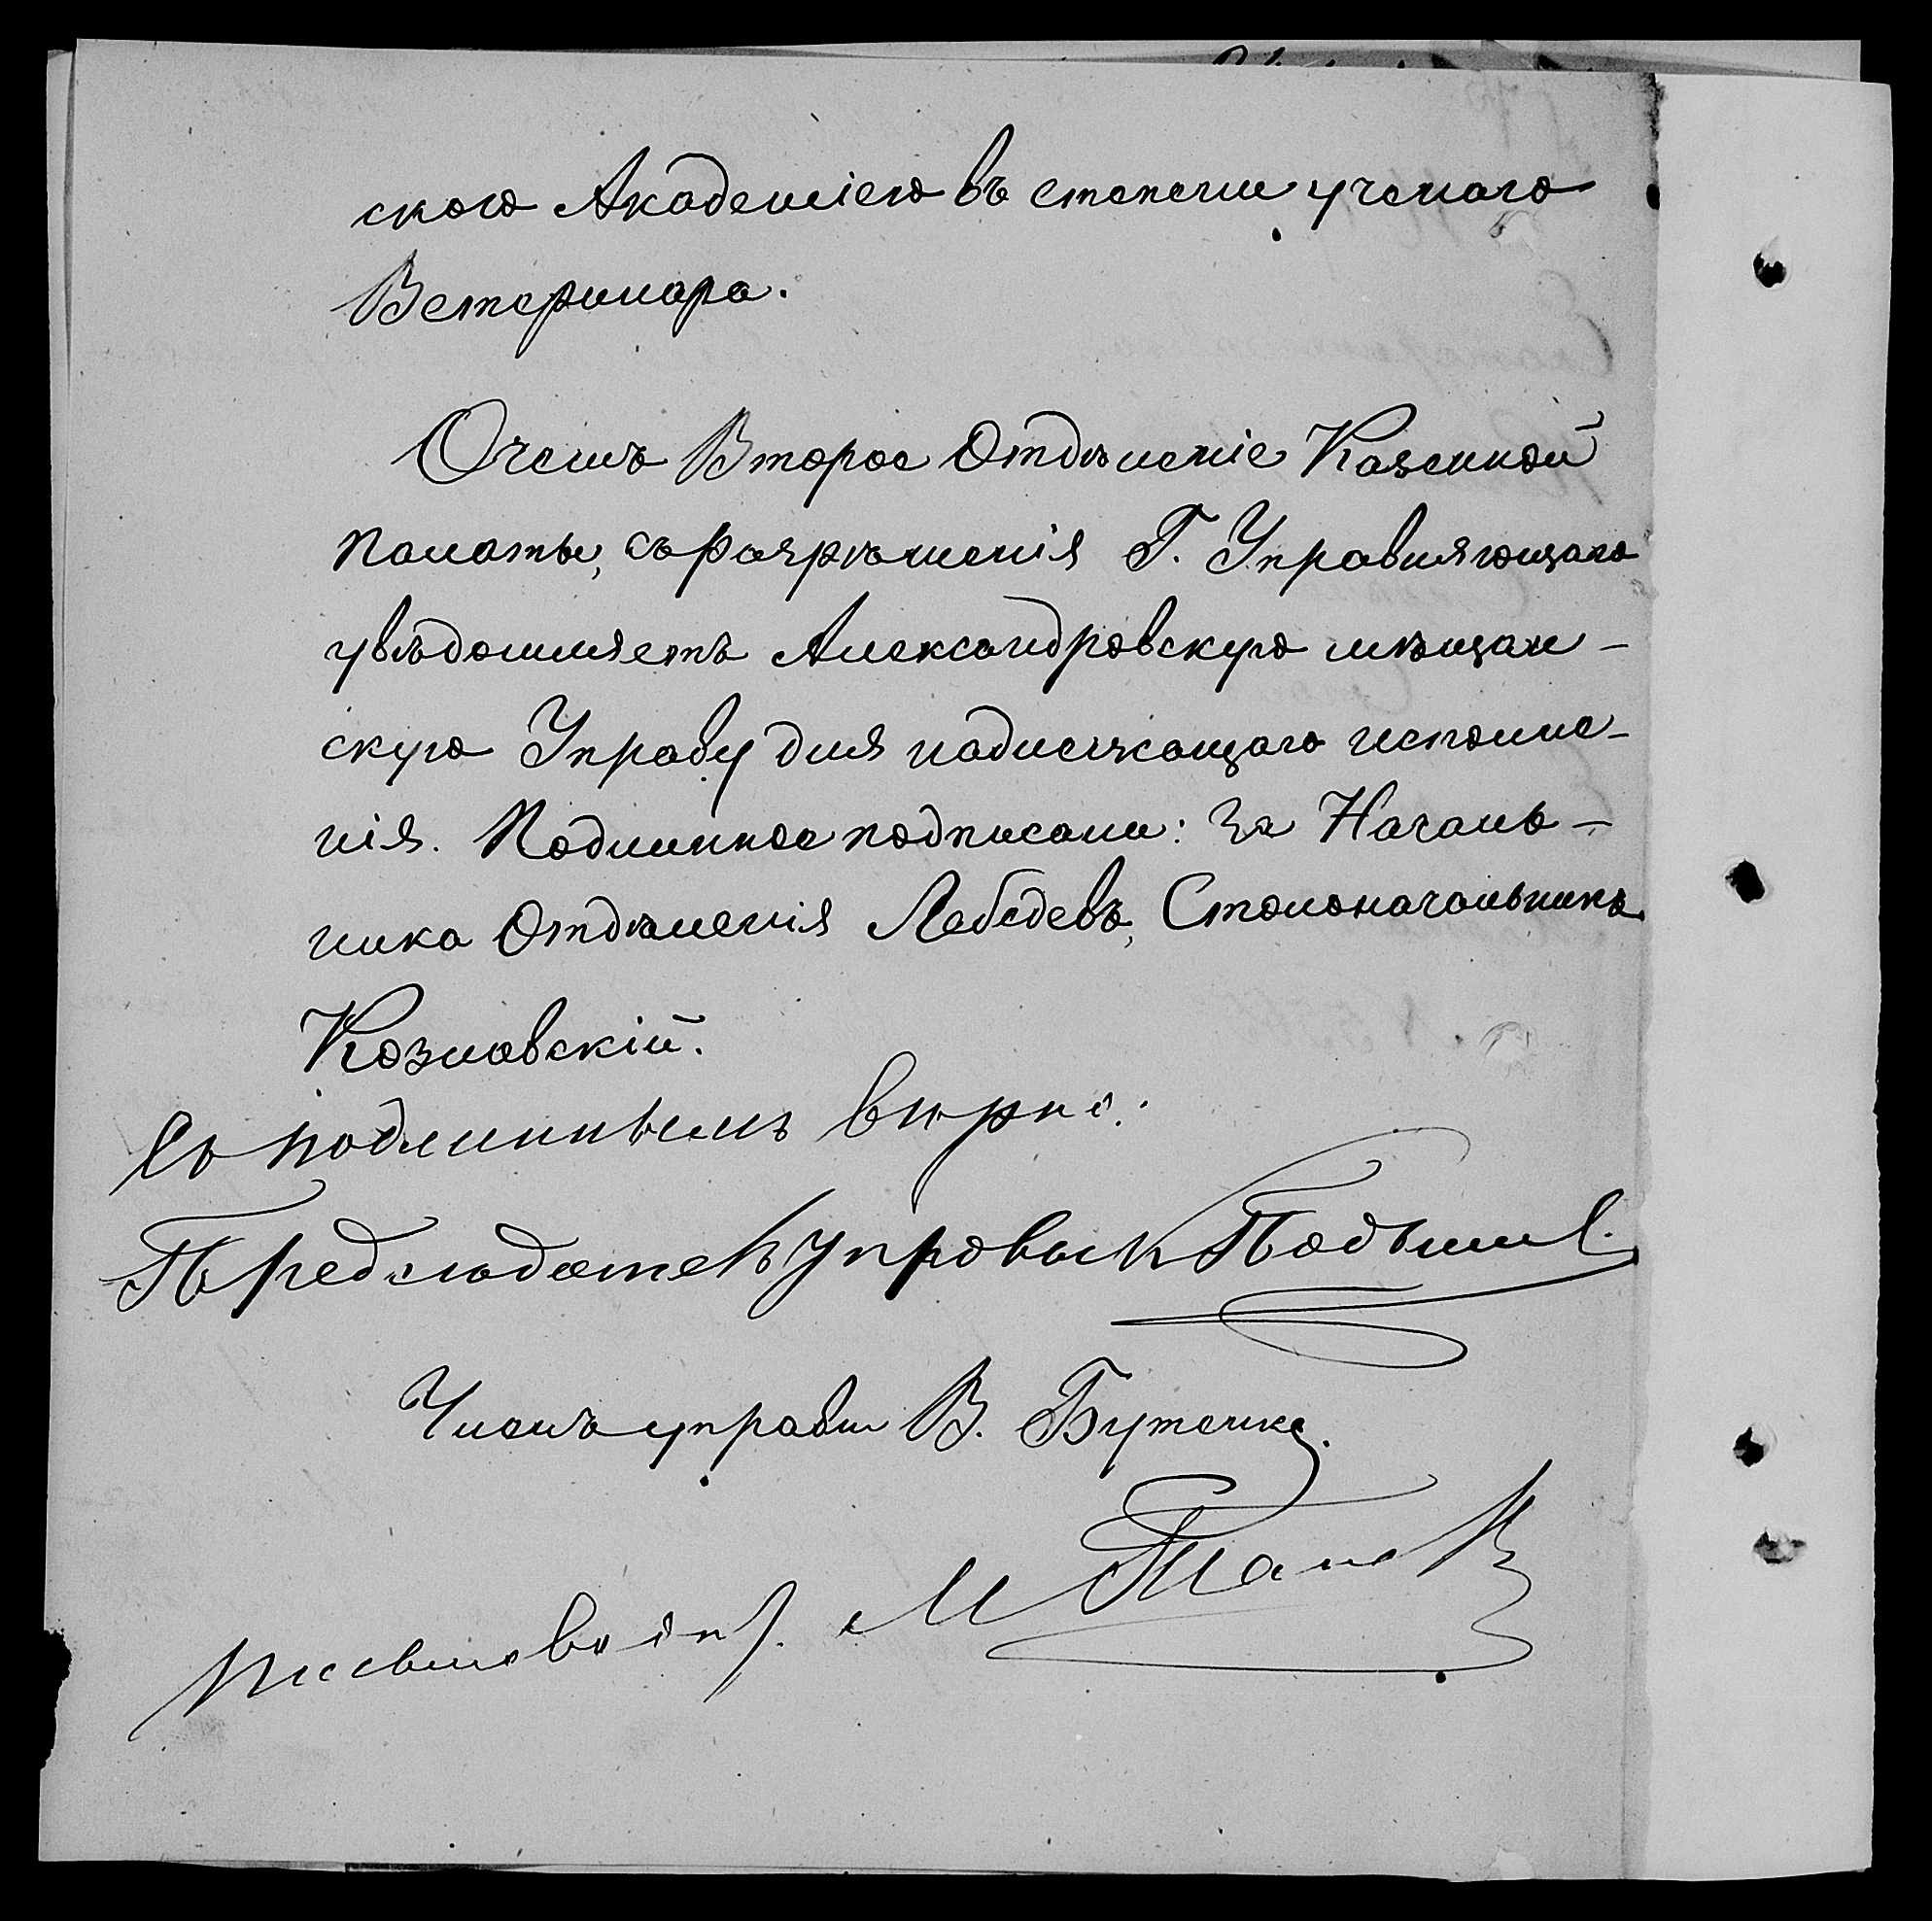 скою Академіею въ степени ученаго
Ветеринара.
О чемъ Второе Отдѣленіе Казенной
Палаты, съ разрѣшенія Г. Управляющаго
увѣдомляетъ Александровскую мѣщан-
скую Управу для надлежащаго исполне-
нія. Подлинное подписали: За Началь-
ника Отдѣленія Лебедевъ, Столоначальникъ
Козловскій.
Съ подлиннымъ вѣрно:
Предсѣдатель Управы
Членъ управы В. Бутенко.
Письмовод. М